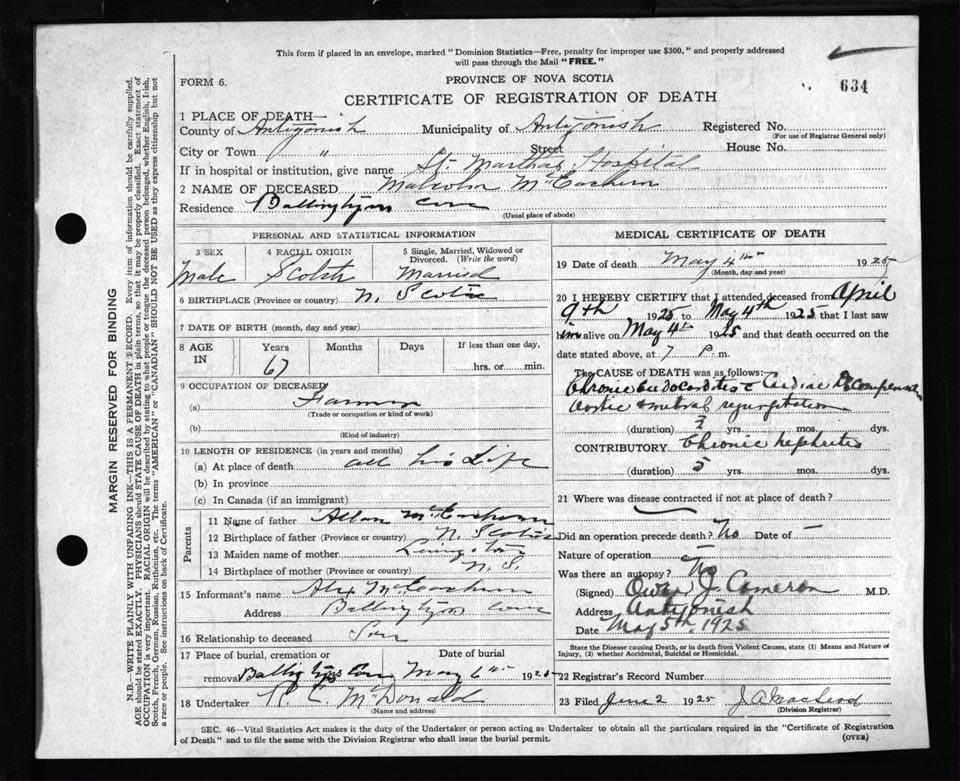 This form if placed in an envelope, marked "Dominion Statistics—Free, penalty for improper use $300," and properly addressed
will pass through the Mail "FREE."
FORM 6.
PROVINCE OF NOVA SCOTIA
634
CERTIFICATE OF REGISTRATION OF DEATH
1 PLACE OF DEATH—
County of Antigonish Municipality of Antigonish Registered No.
(For use of Registrar General only)
City or Town " Street House No.
If in hospital or institution, give name St. Marthas Hospital
2 NAME OF DECEASED Malcolm McEachern
Residence Cove
(Usual place of abode)
PERSONAL AND STATISTICAL INFORMATION
3 SEX 4 RACIAL ORIGIN 5 Single, Married, Widowed or Divorced. (Write the word)
Male Scotch Married
6 BIRTHPLACE (Province or country) N. Scotia
7 DATE OF BIRTH (month, day and year)
8 AGE IN Years Months Days If less than one day,
67 hrs. or min.
9 OCCUPATION OF DECEASED
(a) Farmer
(Trade or occupation or kind of work)
(b)
(Kind of industry)
10 LENGTH OF RESIDENCE (in years and months)
(a) At place of death all his Life
(b) In province
(c) In Canada (if an immigrant)
Parents
11 Name of father Allan McEachern
12 Birthplace of father (Province or country) N. Scotia
13 Maiden name of mother
14 Birthplace of mother (Province or country) N. S.
15 Informant's name Alex McEachern
Address Cove
16 Relationship to deceased Son
17 Place of burial, cremation or removal Date of burial
May 6th 1925
18 Undertaker McDonald
(Name and address)
MEDICAL CERTIFICATE OF DEATH
19 Date of death May 4th 1925
(Month, day and year)
20 I HEREBY CERTIFY that I attended deceased from April
9th 1925 to May 4th 1925 that I last saw
him alive on May 4th 1925 and that death occurred on the
date stated above, at 7 P.m.
The CAUSE OF DEATH was as follows:
Chronic Endocarditis c Cardiac Decompensation
Aortic & mitral regurgitation
(duration) ? yrs. mos. dys.
CONTRIBUTORY Chronic Nephritis
(duration) 5 yrs. mos. dys.
21 Where was disease contracted if not at place of death?
Did an operation precede death? No Date of —
Nature of operation —
Was there an autopsy? No
(Signed) Owen J. Cameron M.D.
Address Antigonish
Date May 5th, 1925
State the Disease causing Death, or in death from Violent Causes, state (1) Means and Nature of
Injury, (2) whether Accidental, Suicidal or Homicidal.
22 Registrar's Record Number
23 Filed June 2 1925
(Division Registrar)
SEC. 46—Vital Statistics Act makes it the duty of the Undertaker or person acting as Undertaker to obtain all the particulars required in the "Certificate of Registration
of Death" and to file the same with the Division Registrar who shall issue the burial permit.
(OVER)
MARGIN RESERVED FOR BINDING
N.B.—WRITE PLAINLY WITH UNFADING INK—THIS IS A PERMANENT RECORD. Every item of information should be carefully supplied.
AGE should be stated EXACTLY. PHYSICIANS should STATE CAUSE OF DEATH in plain terms, so that it may be properly classified. Exact statement of
OCCUPATION is very important. RACIAL ORIGIN will be described by stating to what people or tongue the deceased person belonged, whether English, Irish,
Scotch, French, German, Russian, Ruthenian, etc. The terms "AMERICAN" or "CANADIAN" SHOULD NOT BE USED as they express citizenship but not
a race or people. See instructions on back of Certificate.